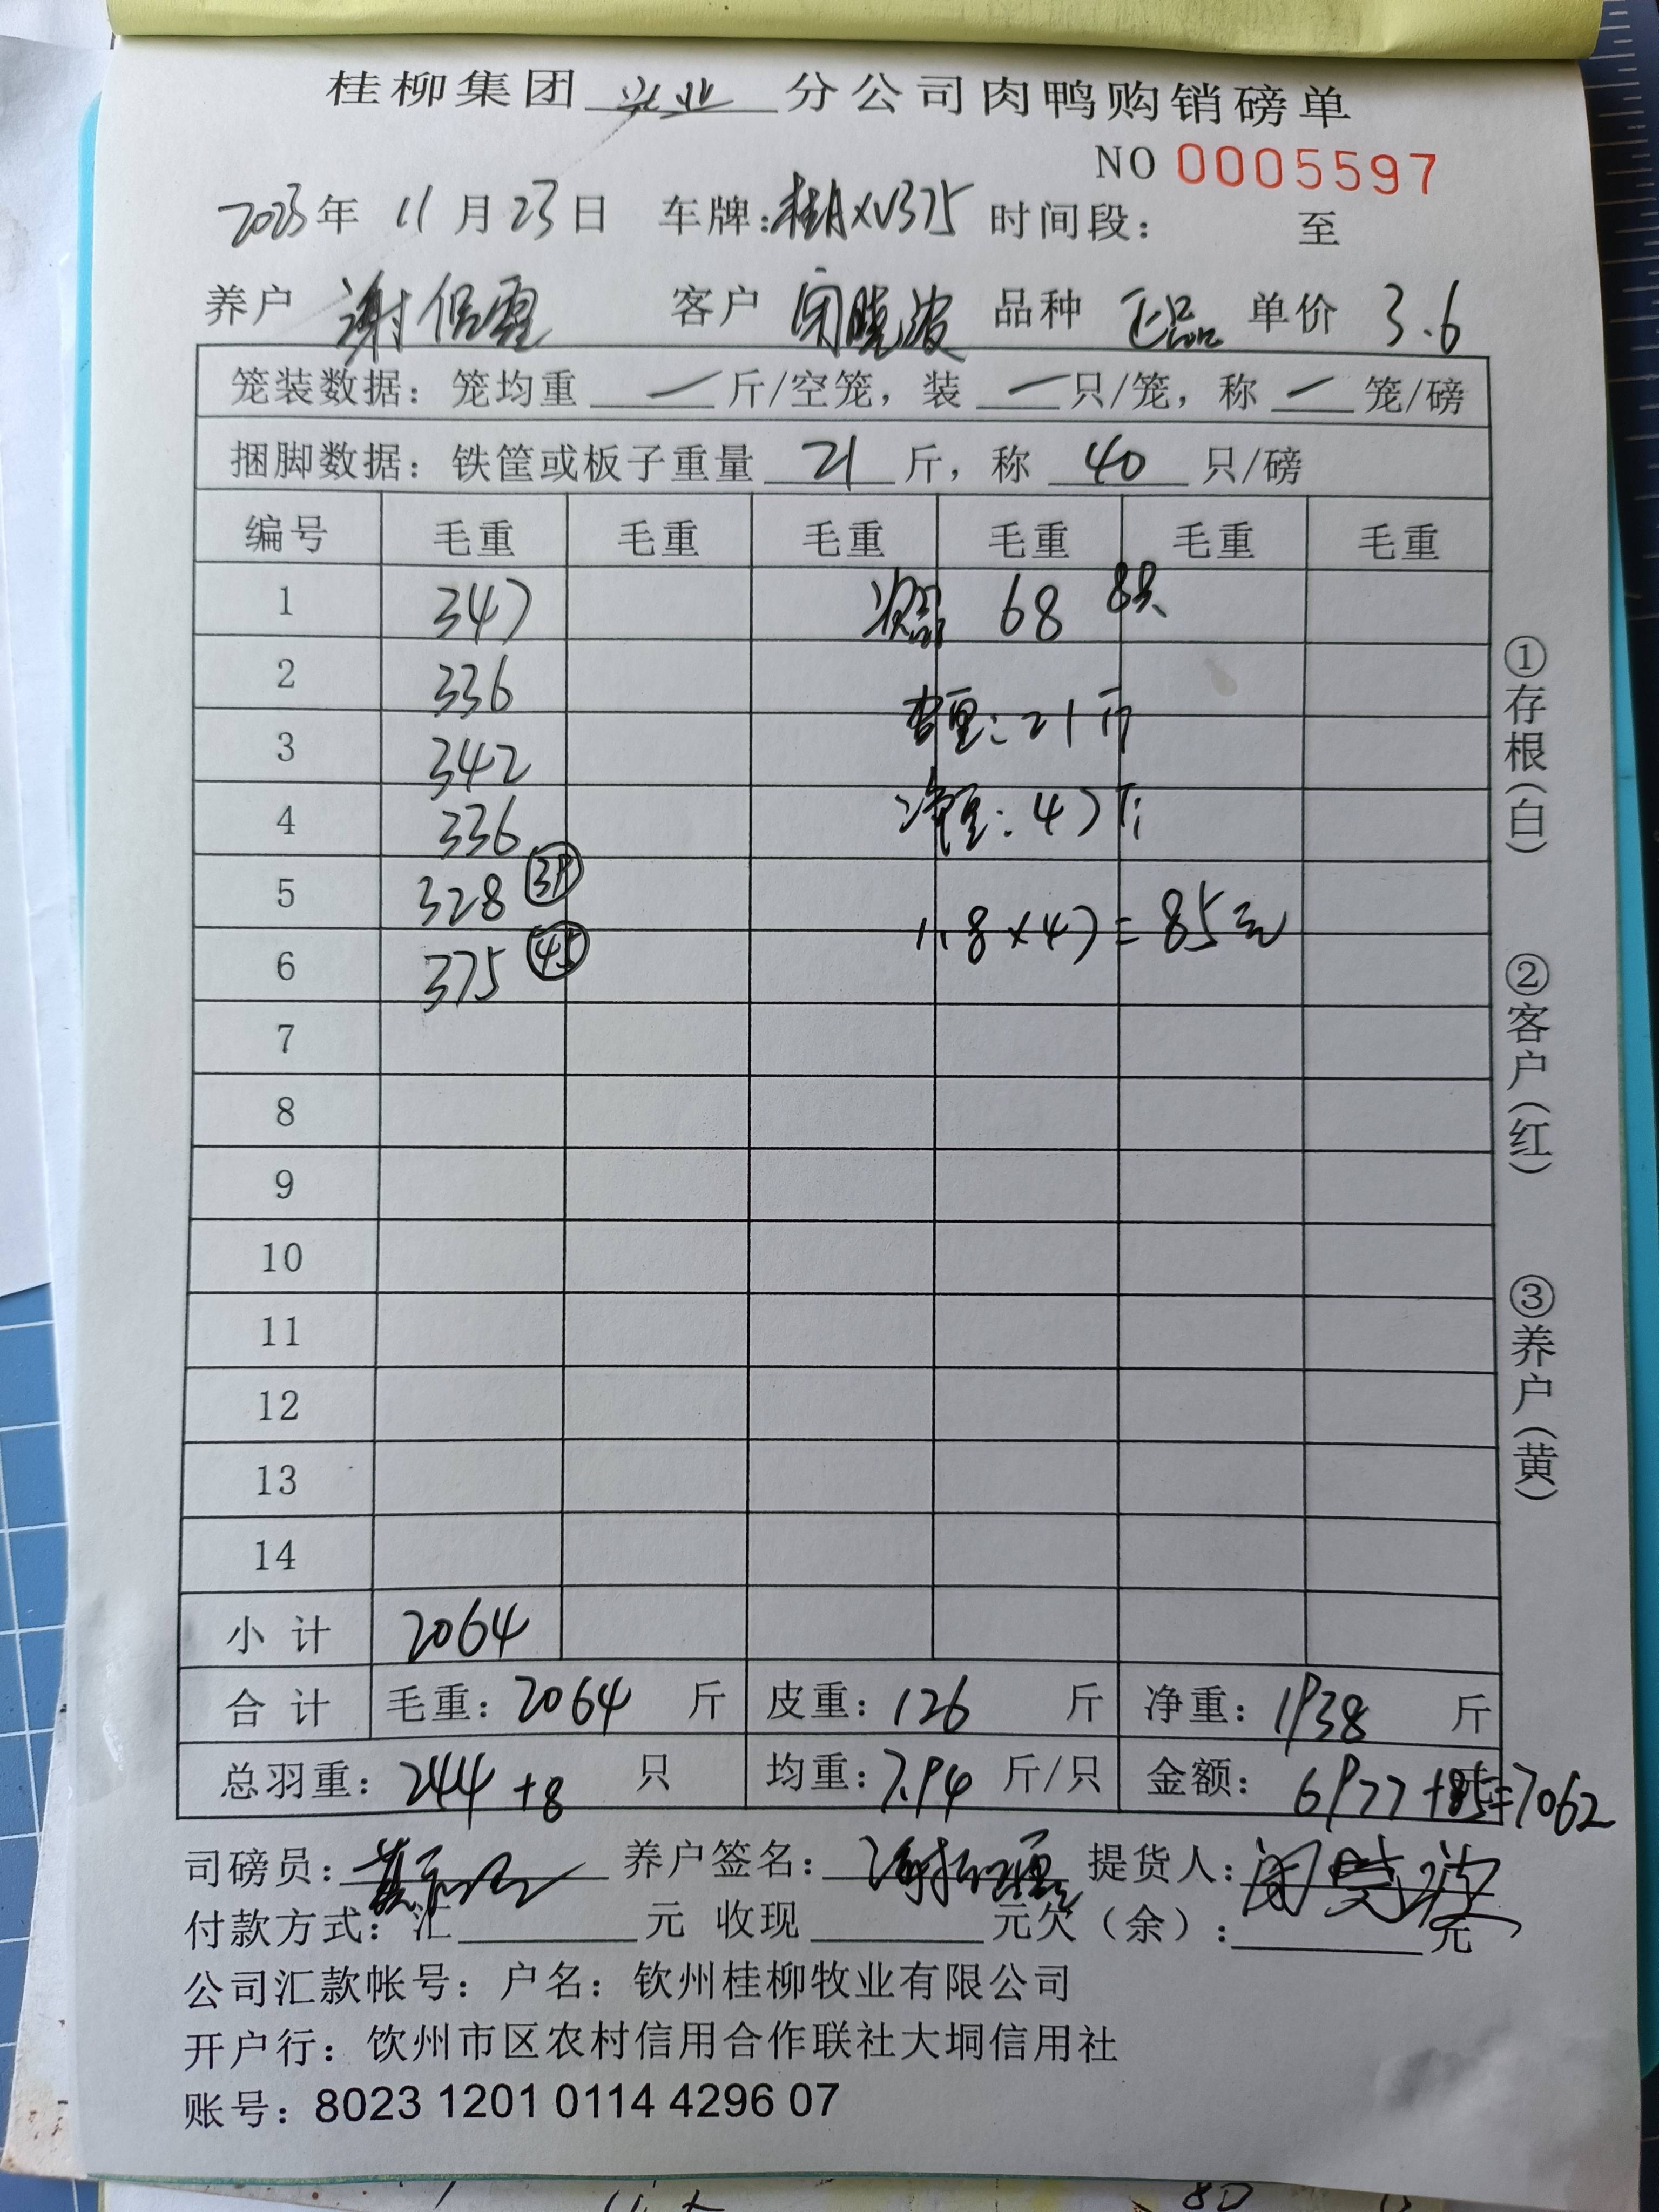 桂柳集团 兴业 分公司肉鸭购销磅单
NO 0005597
2023年 11月23日 车牌:桂AXV375 时间段: 至
养户 谢保霞 客户 闭晓波 品种 正品 单价 3.6
笼装数据: 笼均重 — 斤/空笼, 装 — 只/笼, 称 — 笼/磅
捆脚数据: 铁筐或板子重量 21 斤, 称 40 只/磅
编号 毛重 毛重 毛重 毛重 毛重 毛重
1 347 次品 68 8只
2 336
皮重: 21斤
3 342
4 336 净重: 47斤
5 328
1.8×47=85元
6 375 45
7
8
9
10
11
12
13
14
小计 2064
合计 毛重: 2064 斤 皮重: 126 斤 净重: 1938 斤
总羽重: 244+8 只 均重: 7.94 斤/只 金额: 6977+85=7062
①存根(白)
②客户(红)
③养户(黄)
司磅员: 养户签名: 提货人: 闭晓波
付款方式: 汇 元 收现 元欠(余): 元
公司汇款帐号: 户名: 钦州桂柳牧业有限公司
开户行: 钦州市区农村信用合作联社大垌信用社
账号: 8023 1201 0114 4296 07